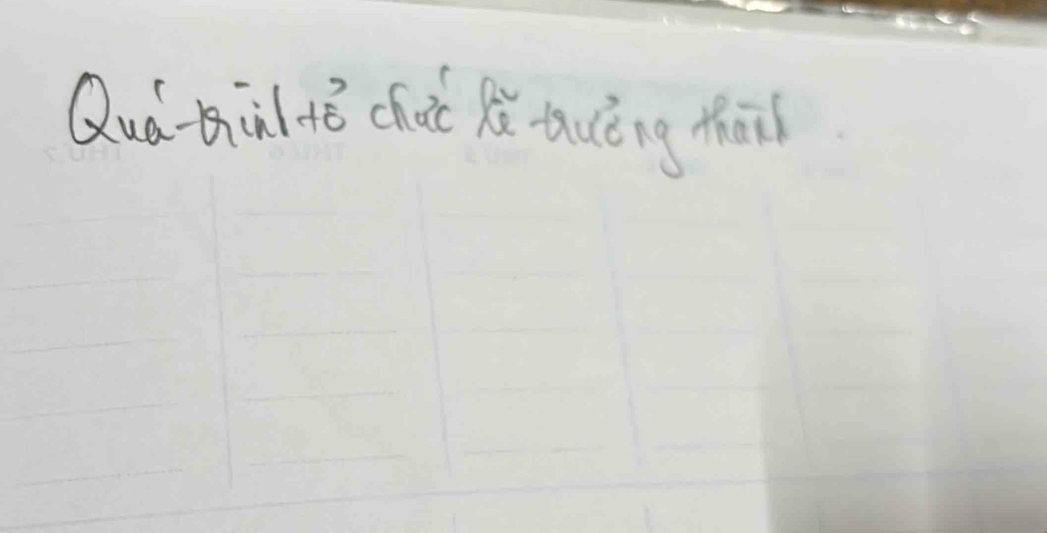 Quá trình tổ chức lễ trưởng thành.